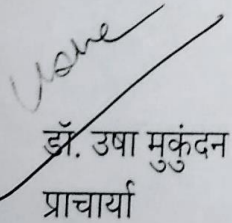 डॉ. उषा मुकुंदन
प्राचार्या